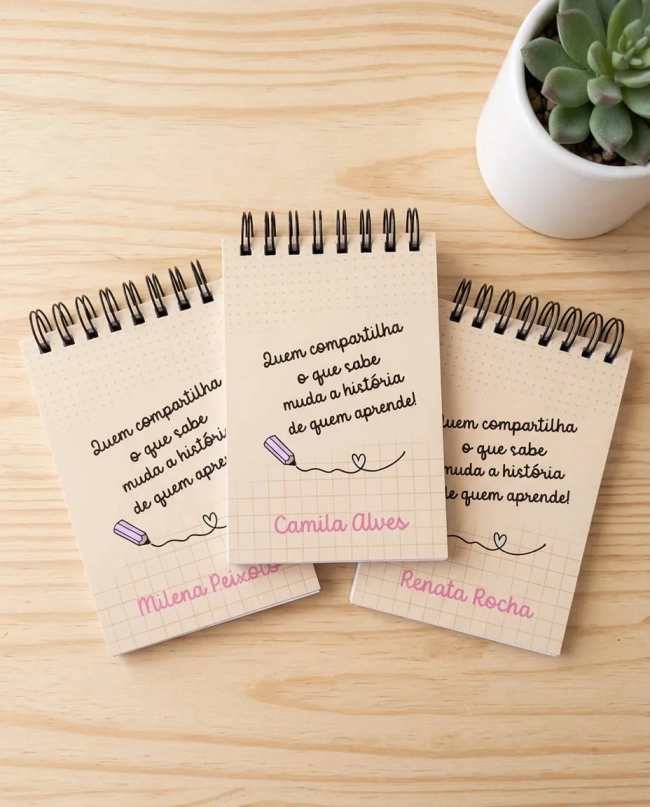 Quem compartilha
o que sabe
muda a histó
de quem apre
Milena Peixoto
Quem compartilha
o que sabe
muda a história
de quem aprende!
Camila Alves
uem compartilha
o que sabe
muda a história
de quem aprende!
Renata Rocha